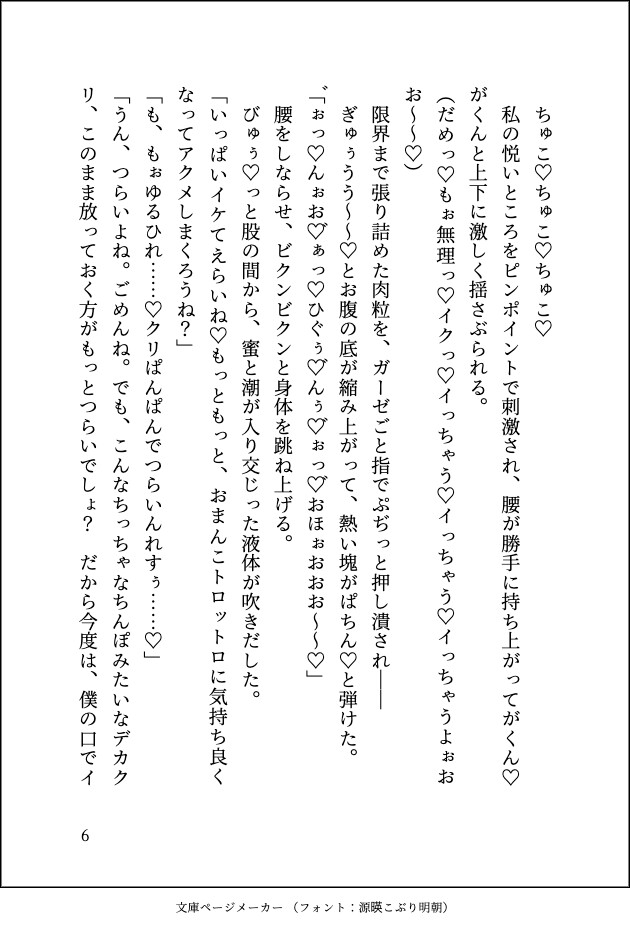 ちゅこ♡ちゅこ♡ちゅこ♡
私の悦いところをピンポイントで刺激され、腰が勝手に持ち上がってがくん♡
がくんと上下に激しく揺さぶられる。
(だめっ♡もぉ無理っ♡イクっ♡イっちゃう♡イっちゃう♡イっちゃうよぉお
お〜〜♡)
限界まで張り詰めた肉粒を、ガーゼごと指でぷぢっと押し潰され――
ぎゅぅうう〜〜♡とお腹の底が縮み上がって、熱い塊がぱちん♡と弾けた。
「゛ぉっ♡んぉお♡゛ぁっ♡ひぐぅ♡゛んぅ♡゛ぉっ♡゛おほぉおおお〜〜♡」
腰をしならせ、ビクンビクンと身体を跳ね上げる。
びゅぅ♡っと股の間から、蜜と潮が入り交じった液体が吹きだした。
「いっぱいイケてえらいね♡もっともっと、おまんこトロットロに気持ち良く
なってアクメしまくろうね？」
「も、もぉゆるひれ……♡クリぱんぱんでつらいんれすぅ……♡」
「うん、つらいよね。ごめんね。でも、こんなちっちゃなちんぽみたいなデカク
リ、このまま放っておく方がもっとつらいでしょ？　だから今度は、僕の口でイ
6
文庫ページメーカー （フォント：源暎こぶり明朝）